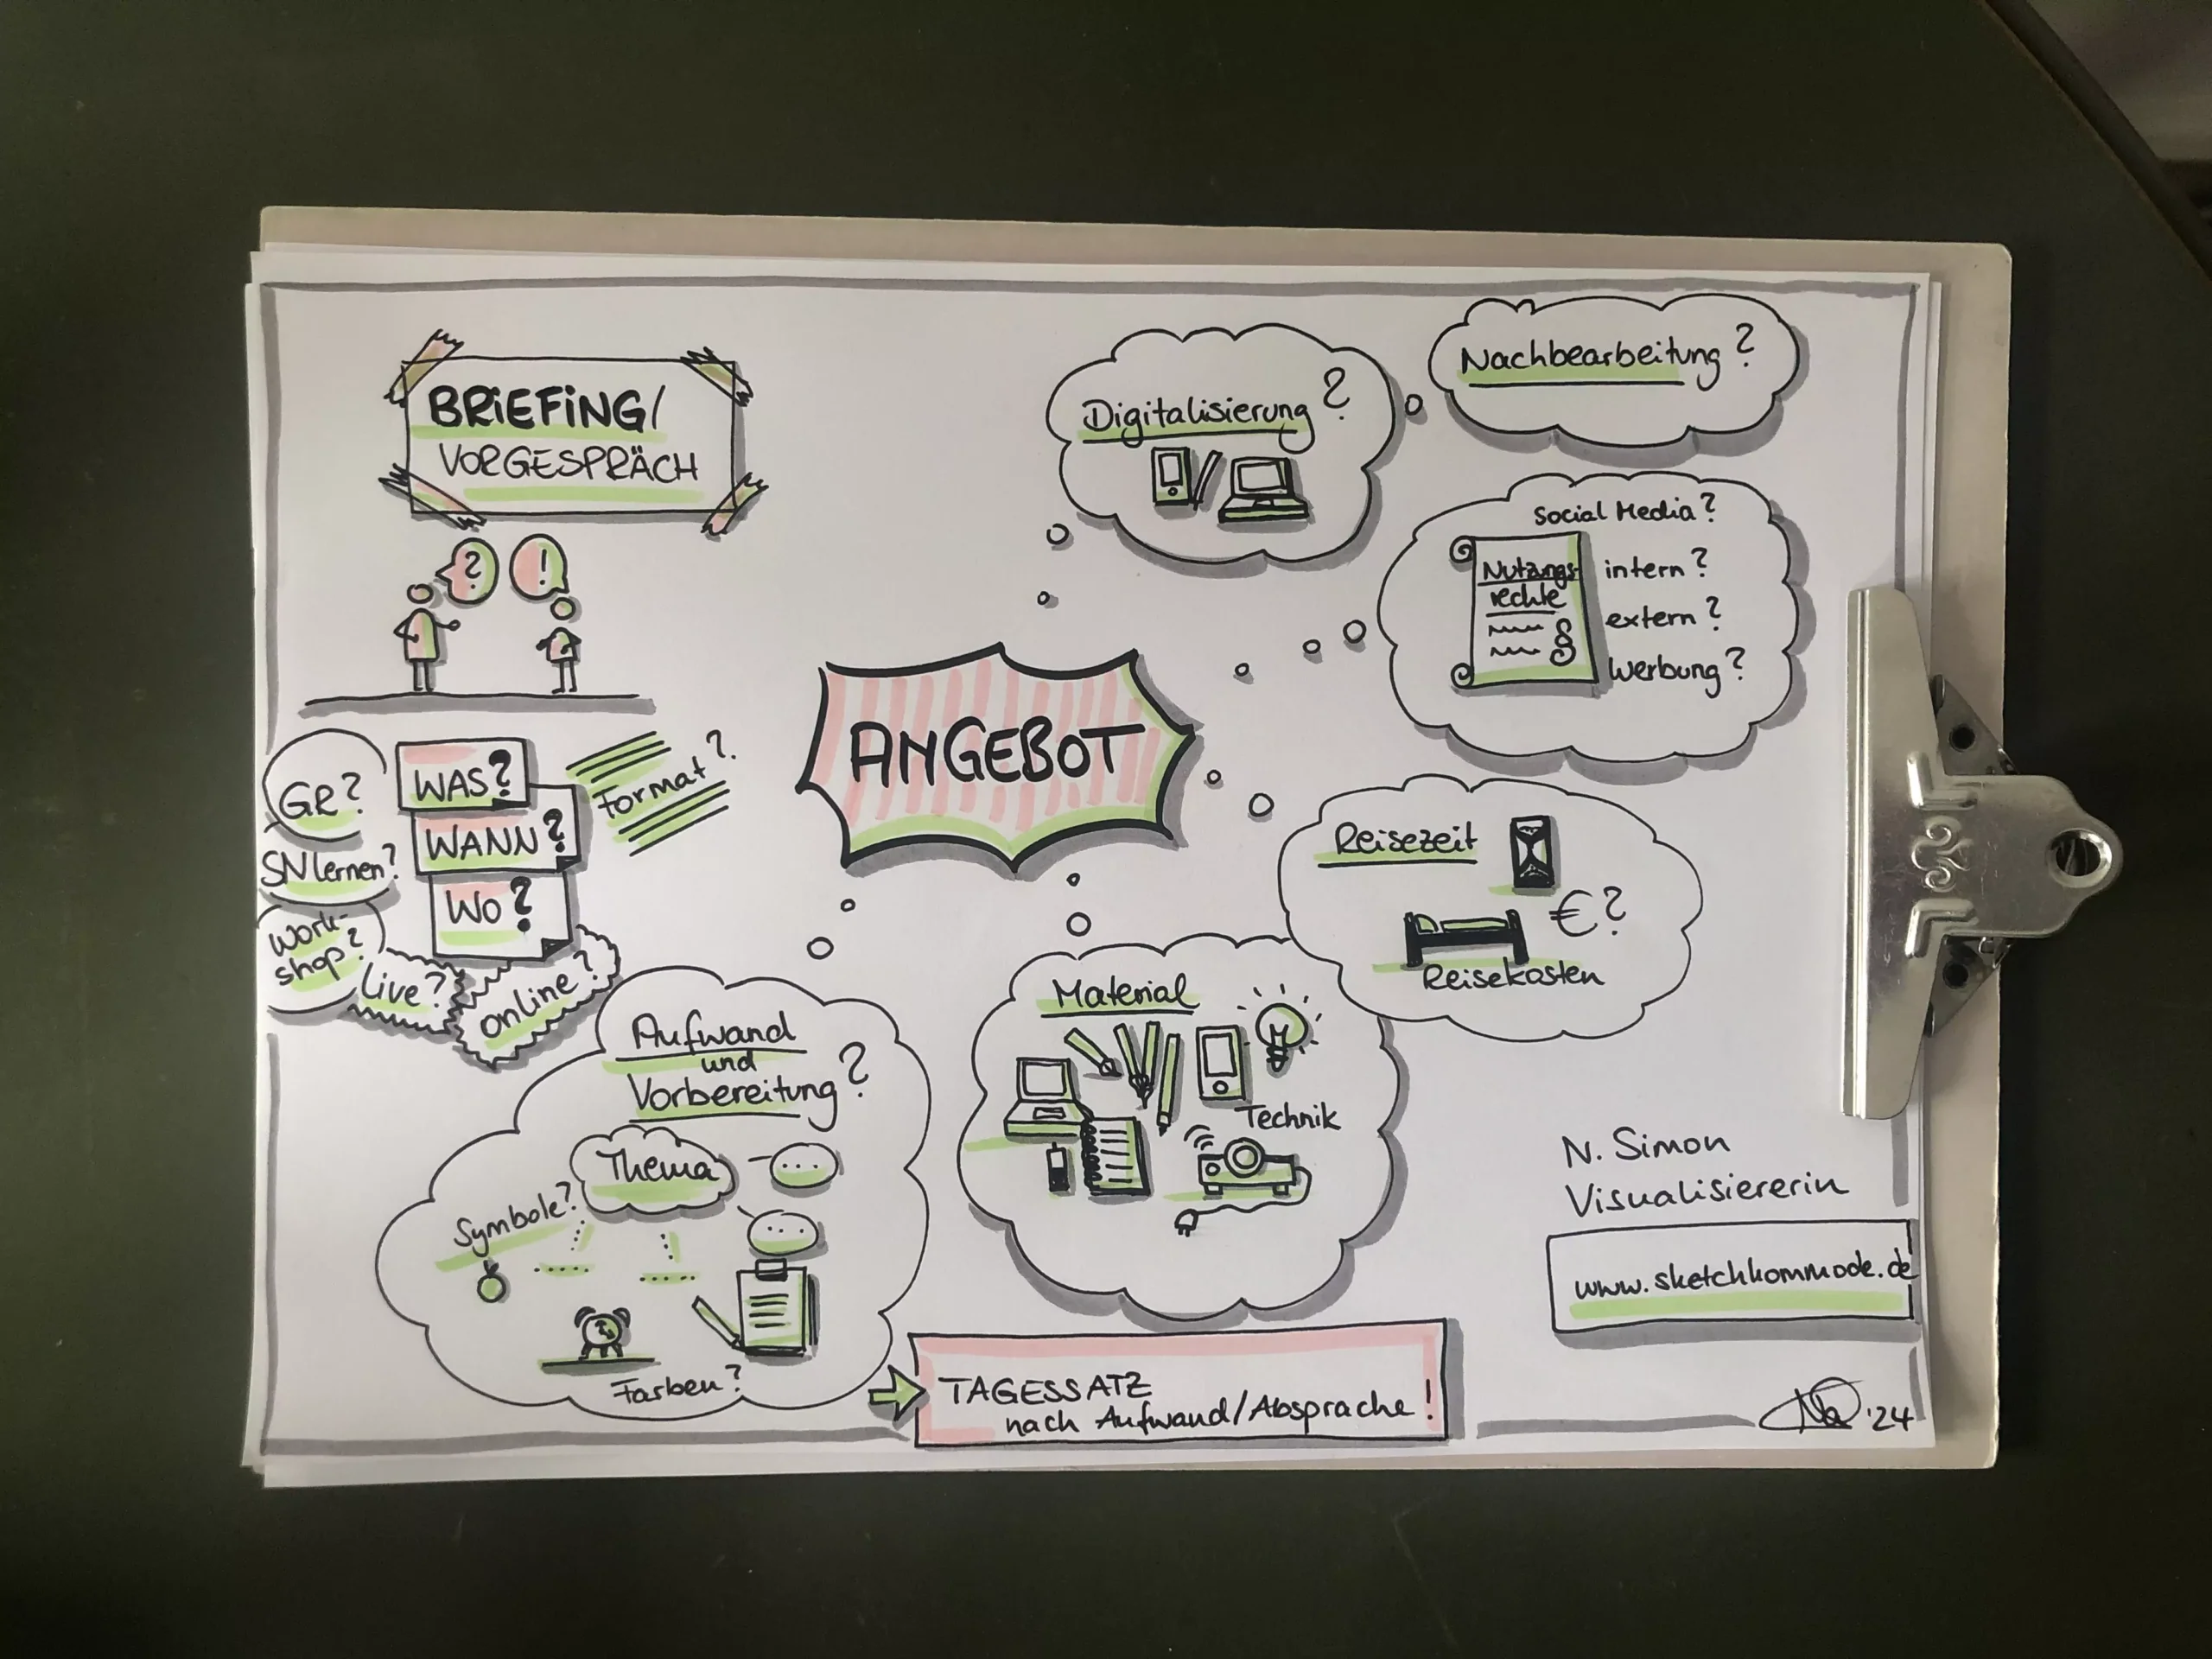 BRIEFING/
VORGESPRÄCH
?
!
GR?
SN lernen?
Work-
shop?
Live?
online?
WAS?
WANN?
WO?
Format?
ANGEBOT
Digitalisierung?
Nachbearbeitung?
Social Media?
Nutzungs-
rechte
§
intern?
extern?
Werbung?
Reisezeit
€?
Reisekosten
Material
Technik
Aufwand
und
Vorbereitung?
Thema
...
Symbole?
...
Farben?
TAGESSATZ
nach Aufwand/Absprache!
N. Simon
Visualisiererin
www.sketchkommode.de
'24